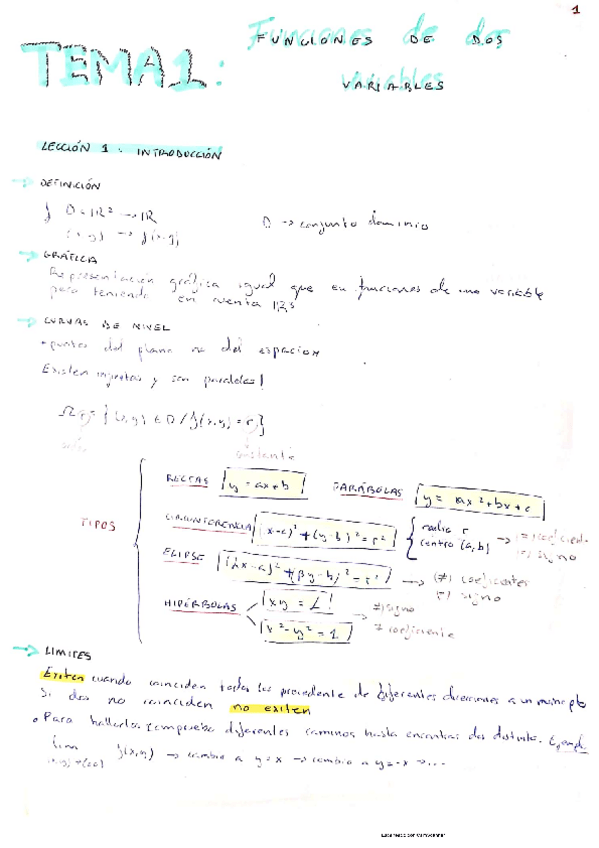 1
TEMA 1: FUNCIONES DE DOS
VARIABLES
LECCIÓN 1: INTRODUCCIÓN
→ DEFINICIÓN
f D = IR² → IR
(x,y) → f(x,y)
D → conjunto dominio
→ GRÁFICA
Representación gráfica igual que en funciones de una variable
pero teniendo en cuenta
→ CURVAS DE NIVEL
• puntos del plano no del espacio
Existen infinitas y son paralelas!
= {(x,y) ∈ D / f(x,y) = c}
constante
TIPOS
RECTAS y = ax+b
PARÁBOLAS y = ax²+bx+c
CIRCUNFERENCIA (x-a)²+(y-b)²=r² { radio r
centro (a,b)
(=) signo
ELIPSE (αx-a)²+(βy-b)²=r² → (≠) coeficientes
(=) signo
HIPÉRBOLAS xy = 1!
x²-y²=1
→ ≠ signo
≠ coeficiente
→ LIMITES
Existen cuando coinciden todos los precedente de diferentes direcciones a un mismo pto
Si dos no coinciden no existen
• Para hallarlos, comprueba diferentes caminos hasta encontrar dos distintos. Ejempl.
lim f(x,y) → cambio a y=x → cambio a y=-x → ...
(x,y)→(0,0)